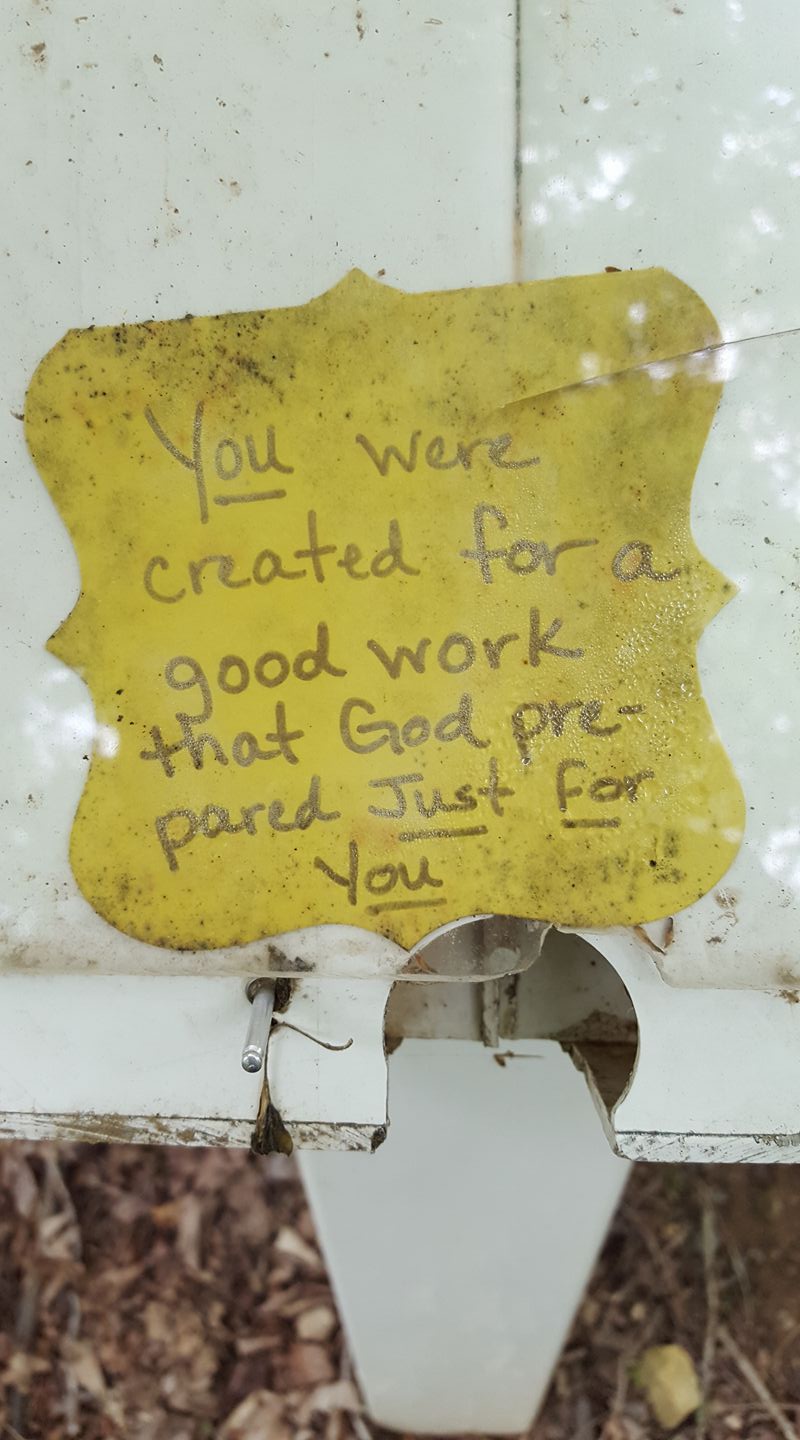 You were
created for a
good work
that God pre-
pared Just for
You